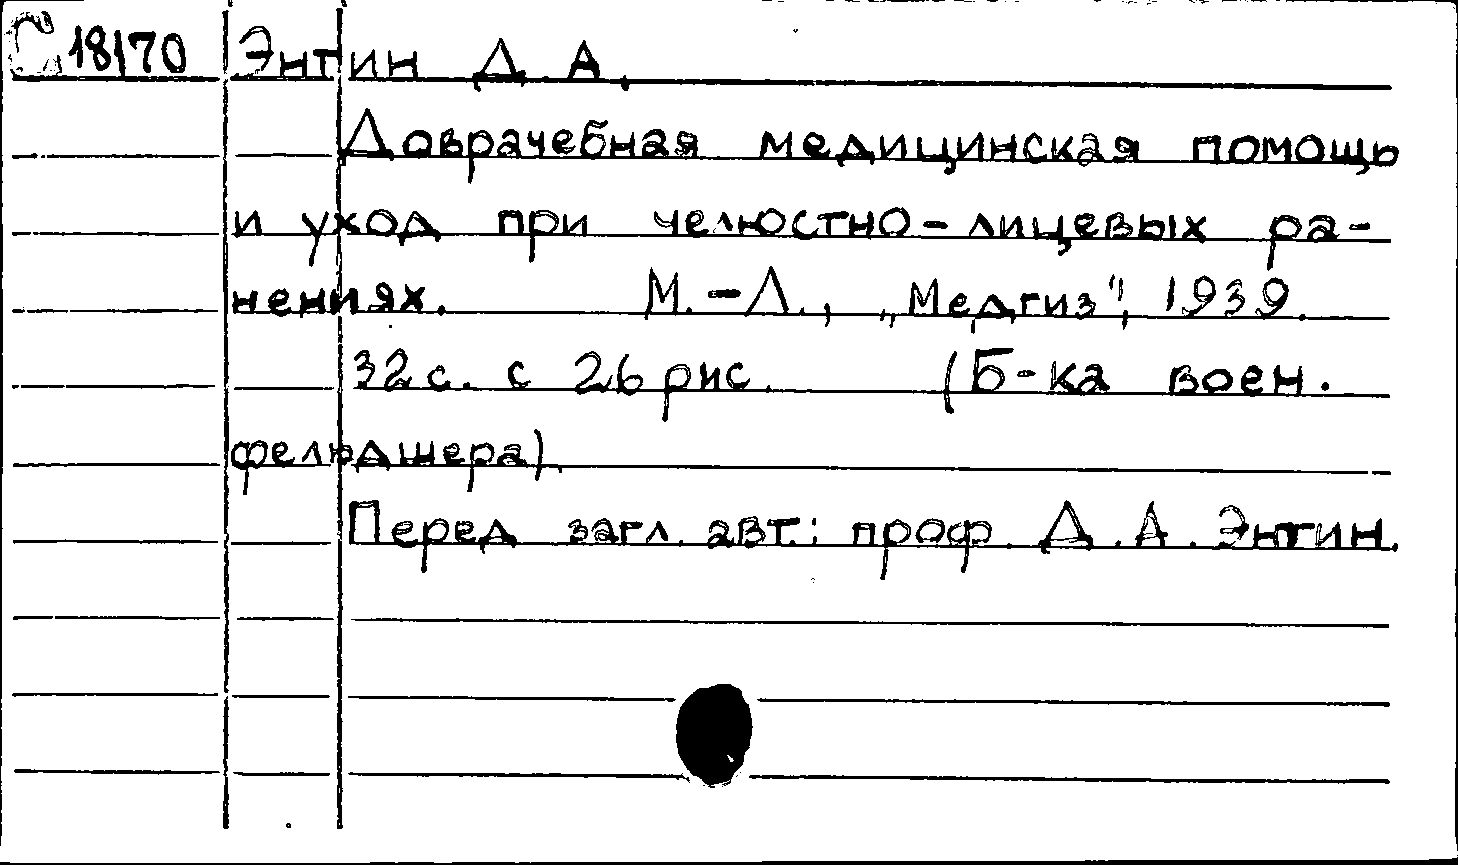 С 18170 Энтин Д. А.
Доврачебная медицинская помощь
и уход при челюстно-лицевых ра-
нениях. М.-Л., „Медгиз", 1939.
32 с. с 26 рис. (Б-ка воен.
фельдшера).
Перед загл. авт.: проф. Д. А. Энтин.